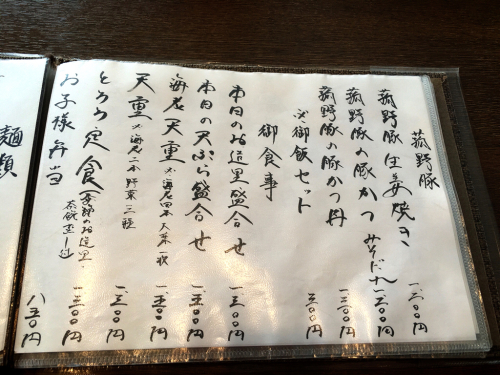 菰野豚
菰野豚生姜焼き 一、二〇〇円
菰野豚の豚かつ みそだれ 一、二〇〇円
菰野豚の豚かつ丼 一、二〇〇円
※御飯セット 三〇〇円
御食事
本日のお造里盛合せ 一、三〇〇円
本日の天ぷら盛合せ 一、五〇〇円
海老天重 ※海老四本 大葉一枚 一、五〇〇円
天重 ※海老二本 野菜三種 一、二〇〇円
とろろ定食 一、三〇〇円
お子様弁当 八五〇円
麺類